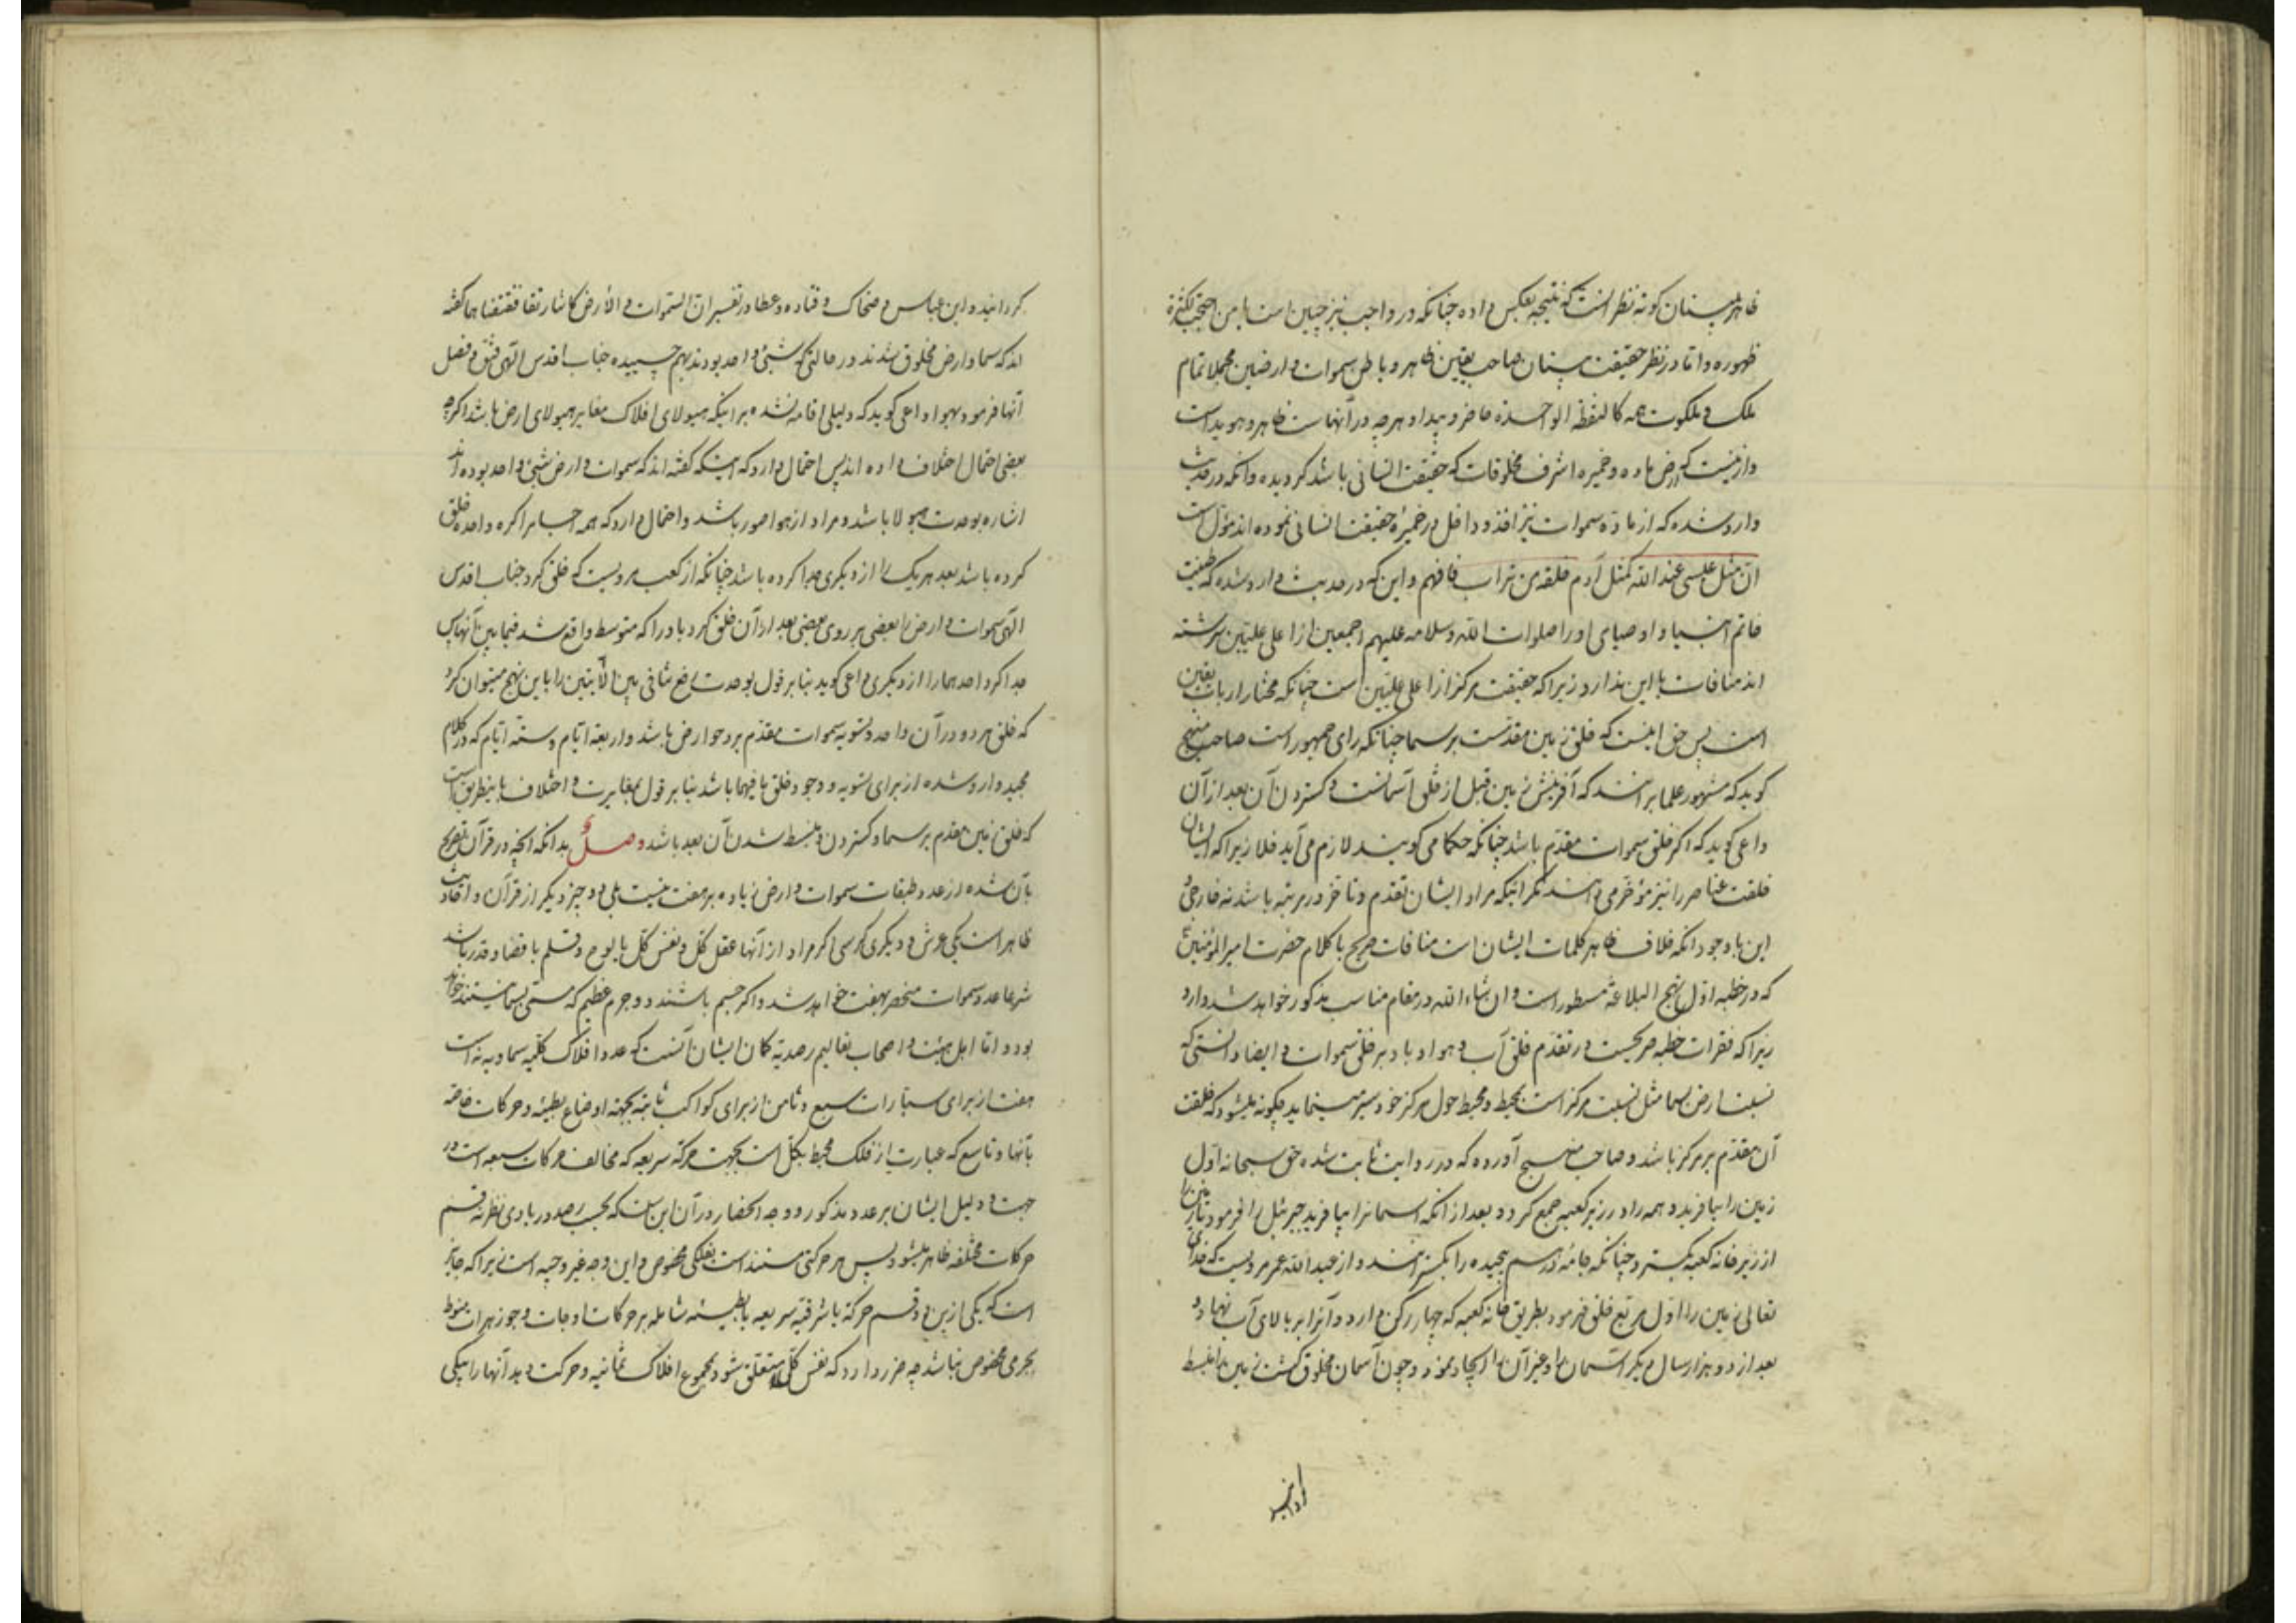 ظاهر بینان کوته نظر است که نتیجه بعکس داده چنانکه در واجب نیز چنین است یا من احتجب بکثرة
ظهوره و اما در نظر حقیقت بینان صاحب یقین ظاهر و باطن سموات و ارضین مجملا تمام
ملک و ملکوت همه کالنقطه الواحدة حاضر و پیدا و هر چه در آنهاست ظاهر و هویداست
و ازینست که ارض ماده و خمیره اشرف مخلوقات که حقیقت انسانی باشد کردیده و آنکه در حدیث
وارد شده که از ماده سموات نیز اخذ و داخل در خمیرهٔ حقیقت انسانی نموده اند مؤل است
ان مثل عیسی عند الله کمثل آدم خلقه من تراب فافهم و این که در حدیث وارد شده که طینت
خاتم انبیا و اوصیای او را صلوات الله و سلامه علیهم اجمعین از اعلی علیین سرشته
اند منافات با این ندارد زیرا که حقیقت مرکز از اعلی علیین است چنانکه مختار ارباب یقین
است پس حق اینست که خلق زمین مقدمست بر سما چنانکه رای جمهور است صاحب منهج
کوید که مشهور علما بر آنند که آفرینش زمین قبل از خلق آسمانست و کستردن آن بعد از آن
داعی کوید که اکر خلق سموات مقدم باشد چنانکه حکما می کویند لازم می آید خلا زیرا که ایشان
خلقت عناصر را نیز مؤخر می دانند مکر اینکه مراد ایشان تقدم و تاخر در مرتبه باشد نه خارجی و
این با وجود آنکه خلاف ظاهر کلمات ایشان است منافات صریح با کلام حضرت امیر المؤمنین
که در خطبه اول نهج البلاغه مسطور است و ان شاء الله در مقام مناسب مذکور خواهد شد دارد
زیرا که فقرات خطبه صریحست در تقدم خلق آب و هوا و باد بر خلق سموات و ایضا دانستی که
نسبت ارض بسما مثل نسبت مرکز است بمحیط و محیط حول مرکز خود سیر مینماید چکونه میشود که خلقت
آن مقدم بر مرکز باشد و صاحب منهج آورده که در روایت ثابت شده حق سبحانه اول
زمین را بیافرید و همه را در زیر کعبه جمع کرد و بعد از آنکه آسمانرا بیافرید جبرئیل را فرمود تا زمین را
از زیر خانه کعبه بکسترد چنانکه جامهٔ درهم پیچیده را بکسترانند و از عبدالله عمر مرویست که خدای
تعالی زمین را اول مربع خلق فرمود بطریق خانه کعبه که چهار رکن دارد و آنرا بر بالای آب نهاد و
بعد از دو هزار سال دیکر آسمان را و غیر آن را ایجاد نمود و چون آسمان مخلوق کشت زمین را منبسط
کردانید و ابن عباس و ضحاک و قتاده و عطا در تفسیر ان السموات و الارض کانتا رتقا ففتقناهما کفته
اند که سما و ارض مخلوق شدند در حالتی که شیئ واحد بودند بهم چسبیده جناب اقدس الهی فتق و فصل
آنها فرمود بهوا داعی کوید که دلیلی اقامه نشده بر اینکه هیولای افلاک مغایر هیولای ارض باشد اکرچه
بعضی احتمال اختلاف داده اند پس احتمال دارد که اینکه کفته اند که سموات و ارض شیئ واحد بوده اند
اشاره بوحدت هیولا باشد و مراد از هوا صور باشد و احتمال دارد که همه اجسام را کره واحده خلق
کرده باشد بعد هر یک را از دیکری جدا کرده باشد چنانکه از کعب مرویست که خلق کرد جناب اقدس
الهی سموات و ارض را بعضی بر روی بعضی بعد از آن خلق کرد باد را که متوسط واقع شد فیما بین آنها پس
جدا کرد احدهما را از دیکری داعی کوید بنا بر قول بوحدت رفع تنافی بین الآیتین را باین نهج میتوان کرد
که خلق هر دو در آن واحد و تسویه سموات مقدم بر دحو ارض باشد و اربعة ایام و ستة ایام که در کلام
مجید وارد شده از برای تسویه و وجود خلق ما فیهما باشد بنا بر قول بمغایرت و اختلاف باینطریق است
که خلق زمین مقدم بر سما و کستردن و منبسط شدن آن بعد باشد وصلٌ بدانکه آنچه در قرآن تصریح
بآن شده از عدد طبقات سموات و ارض زیاده بر هفت نیست بلی دو چیز دیکر از قرآن و احادیث
ظاهر است یکی عرش و دیکری کرسی اکر مراد از آنها عقل کل و نفس کل یا لوح و قلم یا قضا و قدر باشد
شرعا عدد سموات منحصر بهفت خواهد شد و اکر جسم باشند دو جرم عظیم که مسمی بسما نیستند خواهد
بود و اما اهل هیئت و اصحاب تعالیم رصدیه کمان ایشان آنست که عدد افلاک کلیه سماویه نه است
هفت از برای سیارات سبع و ثامن از برای کواکب ثابته بجهة اوضاع بطیئه و حرکات خاصه
بآنها و تاسع که عبارت از فلک محیط بکل است بجهت حرکة سریعه که مخالف حرکات سبعه است در
جهت و دلیل ایشان بر عدد مذکور و وجه انحصار در آن این است که بحسب رصد در بادی نظر نه قسم
حرکات مختلفه ظاهر میشود پس هر حرکتی مستند است بفلکی مخصوص و این وجه غیر وجیه است زیرا که جایز
است که یکی ازین دو قسم حرکة یا شرقیه سریعه یا بطیئه شامله بر حرکات اوجات و جوزهرات منوط
بجرمی مخصوص نباشد چه ضرر دارد که نفس کل متعلق شود بمجموع افلاک ثمانیه و حرکت دهد آنها را بیکی